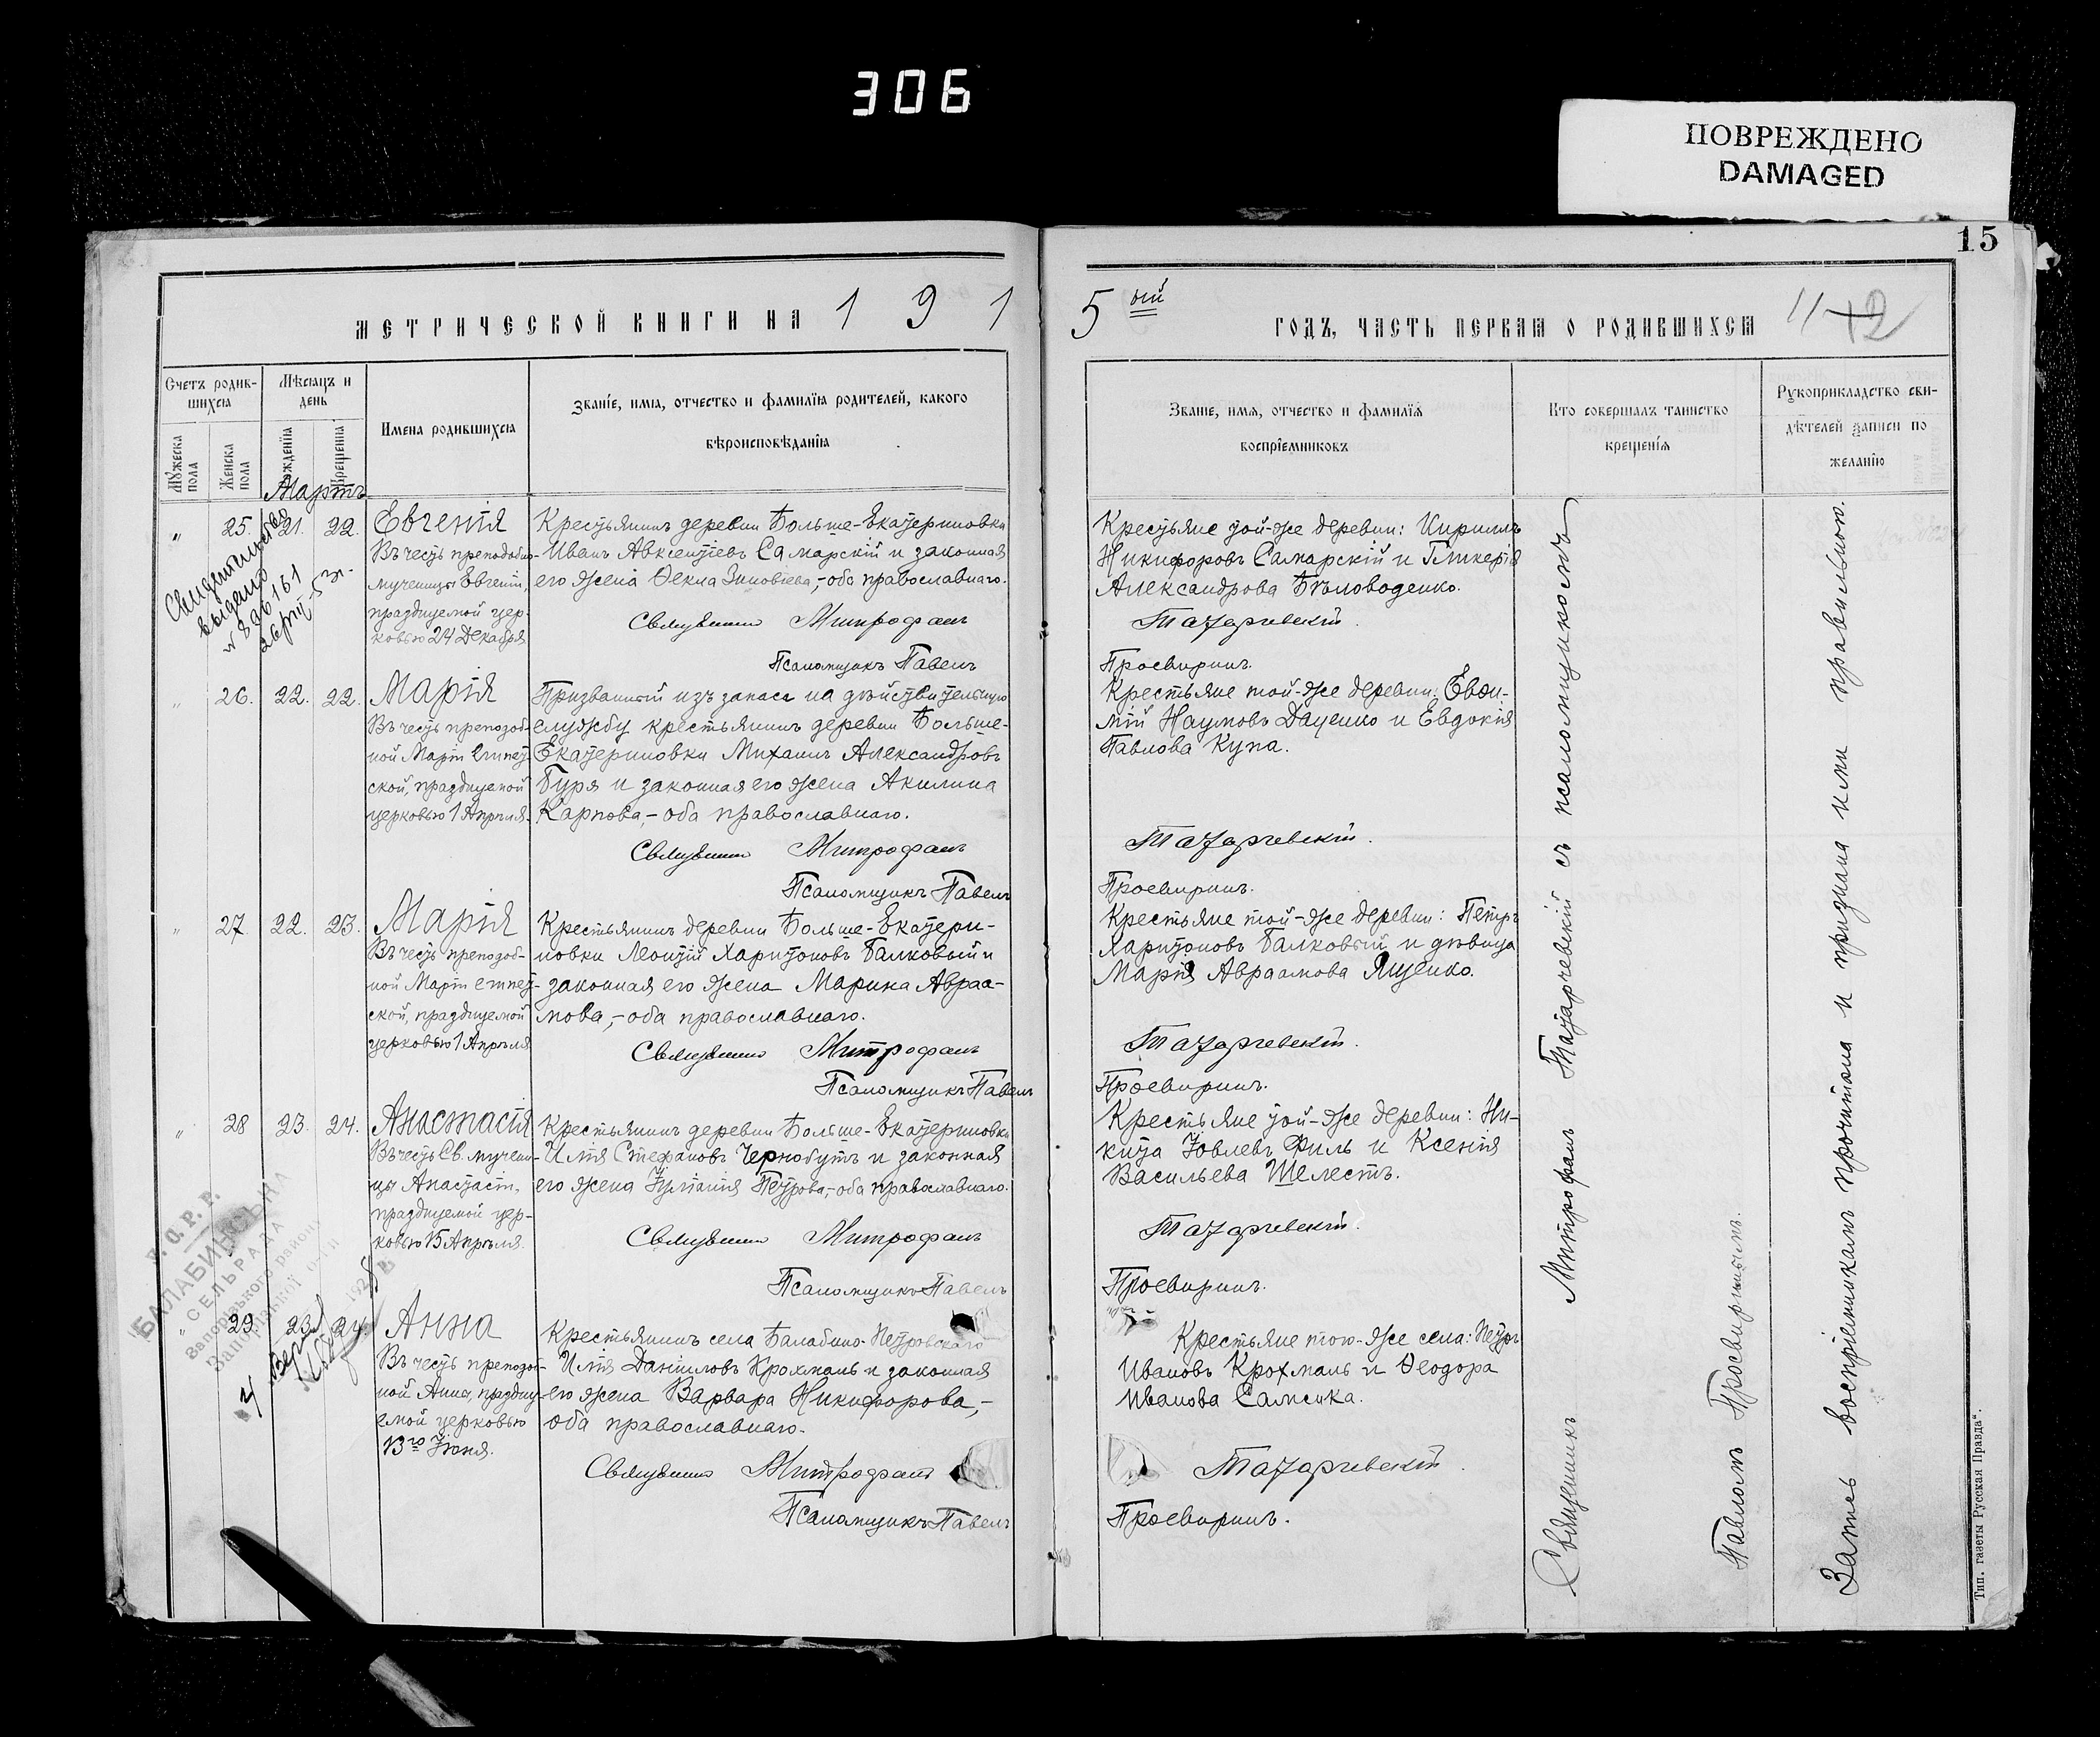 306
ПОВРЕЖДЕНО
DAMAGED
15
МЕТРИЧЕСКОЙ КНИГИ НА 1 9 1
Счетъ родив-
шихся
Мѣсяцъ и
день
Мужеска
пола
Женска
пола
Рожденїя
Крещенїя
Имена родившихся
Званїе, имя, отчество и фамилїя родителей, какого
вѣроисповѣданїя
Мартъ
" 25. 21. 22. Евгенія
Въ честь преподобно-
мученицы Евгеніи,
празднуемой цер-
ковью 24 Декабря
Крестьянинъ деревни Больше-Екатериновки
Иванъ Авксентіевъ Самарскій и законная
его жена Ѳекла Зиновіева,- оба православнаго.
Священникъ Митрофанъ
Псаломщикъ Павелъ
Свидѣтельство
выдано
" 26. 22. 22. Марія
Въ честь преподоб-
ной Маріи Египет-
ской, празднуемой
церковью 1 Апрѣля.
Призванный изъ запаса на дѣйствительную
службу крестьянинъ деревни Больше-
Екатериновки Михаилъ Александровъ
Буря и законная его жена Акилина
Карпова,- оба православнаго.
Священникъ Митрофанъ
Псаломщикъ Павелъ
" 27 22. 23. Марія
Въ честь преподоб-
ной Маріи Египет-
ской, празднуемой
церковью 1 Апрѣля
Крестьянинъ деревни Больше-Екатери-
новки Леонтій Харитоновъ Балковый и
законная его жена Марина Авраа-
мова,- оба православнаго.
Священникъ Митрофанъ
Псаломщикъ Павелъ
" 28 23. 24. Анастасія
Въ честь Св. мучени-
цы Анастасіи,
празднуемой цер-
ковью 15 Апрѣля.
Крестьянинъ деревни Больше-Екатериновки
Илія Стефановъ Чернобутъ и законная
его жена Іуліанія Петрова,- оба православнаго.
Священникъ Митрофанъ
Псаломщикъ Павелъ
БАЛАБИНСЬКА
СЕЛЬРАДА
Запорізького району
" 29. 23. 24. Анна
Въ честь преподоб-
ной Анны, праздну-
емой церковью
13го Іюня.
Крестьянинъ села Балабино-Петровскаго
Илія Даніиловъ Крохмаль и законная
его жена Варвара Никифорова,-
оба православнаго.
Священникъ Митрофанъ
Псаломщикъ Павелъ
5ый ГОДЪ, ЧАСТЬ ПЕРВАЯ О РОДИВШИХСЯ 11 12
Званїе, имя, отчество и фамилїя
воспрїемниковъ
Кто совершалъ таинство
крещенїя
Рукоприкладство сви-
дѣтелей записи по
желанїю
Крестьяне той-же деревни: Кириллъ
Никифоровъ Самарскій и Гликерія
Александрова Бѣловоденко.
Татарчевскій.
Просвиринъ.
Крестьяне той-же деревни: Евѳи-
мій Наумовъ Даценко и Евдокія
Павлова Купа.
Татарчевскій.
Просвиринъ.
Крестьяне той-же деревни: Петръ
Харитоновъ Балковый и дѣвица
Марія Авраамова Яценко.
Татарчевскій.
Просвиринъ.
Крестьяне той-же деревни: Ни-
кита Іовлевъ Филь и Ксенія
Васильева Шелестъ.
Татарчевскій.
Просвиринъ.
Крестьяне того-же села: Петръ
Ивановъ Крохмаль и Ѳеодора
Иванова Самсика.
Татарчевскій.
Просвиринъ.
Священникъ Митрофанъ Татарчевскій съ псаломщикомъ
Павломъ Просвиринымъ.
Запись воспріемникамъ прочитана и признана ими правильною.
Тип. газеты „Русская Правда“.